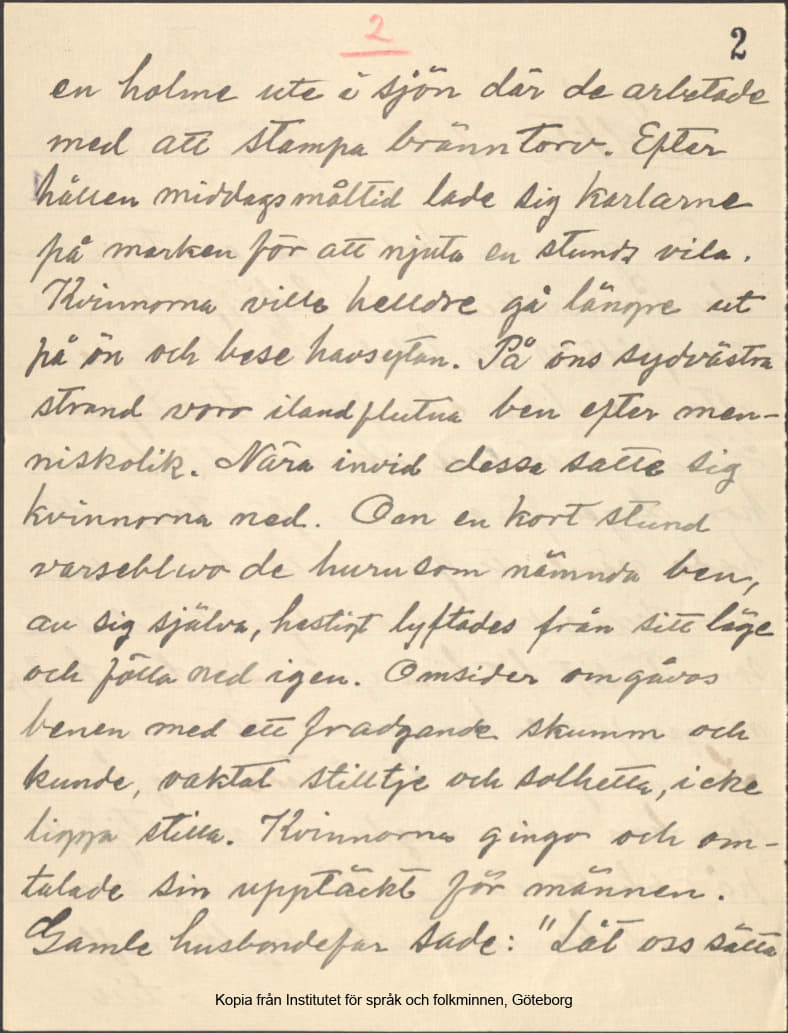 2
2
en holme ute i sjön där de arbetade
med att stampa bränntorv. Efter
hållen middagsmåltid lade sig karlarne
på marken för att njuta en stunds vila.
Kvinnorna ville helldre gå längre ut
på ön och bese havsytan. På öns sydvästra
strand voro ilandflutna ben efter men-
niskolik. Nära invid dessa satte sig
kvinnorna ned. Om en kort stund
varseblevo de hurusom nämnda ben,
av sig själva, hastigt lyftades från sitt läge
och fölla ned igen. Omsider omgåvos
benen med ett fradgande skumm och
kunde, vaktat stilltje och solhetta, icke
ligga stilla. Kvinnorna gingo och om-
talade sin upptäckt för männen.
Gamle husbondefar sade: "Låt oss sätta
Kopia från Institutet för språk och folkminnen, Göteborg